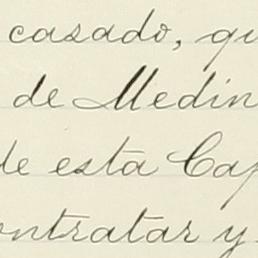 casado, qu
de Medin
de esta Cap
ontratar y